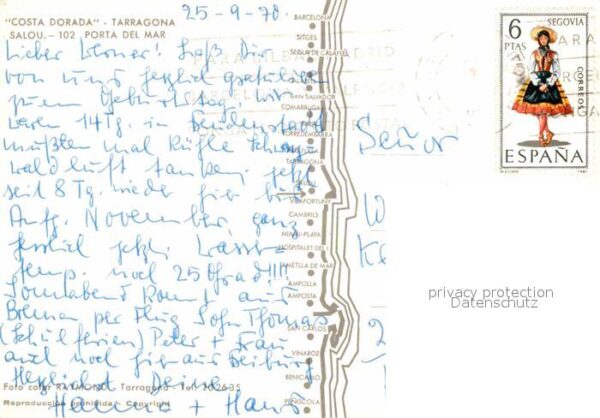 25-9-70.
"COSTA DORADA" - TARRAGONA
SALOU.- 102 PORTA DEL MAR
Lieber Werner! Laß Dir
von uns herzlich gratulieren
zum Geburtstag. Wir
waren 14 Tg. in Freudenstadt
mußten mal kühle Schwarz-
waldluft tanken. Jetzt
seit 8 Tg. wieder hier bis
Anfg. November, ganz
herrlich jetzt. Wasser-
temp. noch 25 Grad!!!
Sonnabend kommt aus
Bremen per Flug Sohn Thomas
(Schulferien) Peter + Frau
auch noch hier aus Freiburg
Herzlichst Deine
Hanne + Hans
Foto color RAYMOND - Tarragona - Tel. 202635
Reproducción prohibida - Copyright
BARCELONA
SITGES
SEGUR DE CALAFELL
SAN SALVADOR
COMARRUGA
TORREDEMBARRA
TARRAGONA
SALOU
VILAFORTUNY
CAMBRILS
MIAMI-PLAYA
HOSPITALET DEL I.
AMETLLA DE MAR
AMPOLLA
AMPOSTA
SAN CARLOS
VINAROZ
BENICARLO
PEÑISCOLA
Señor
6
PTAS
SEGOVIA
CORREOS
ESPAÑA
privacy protection
Datenschutz